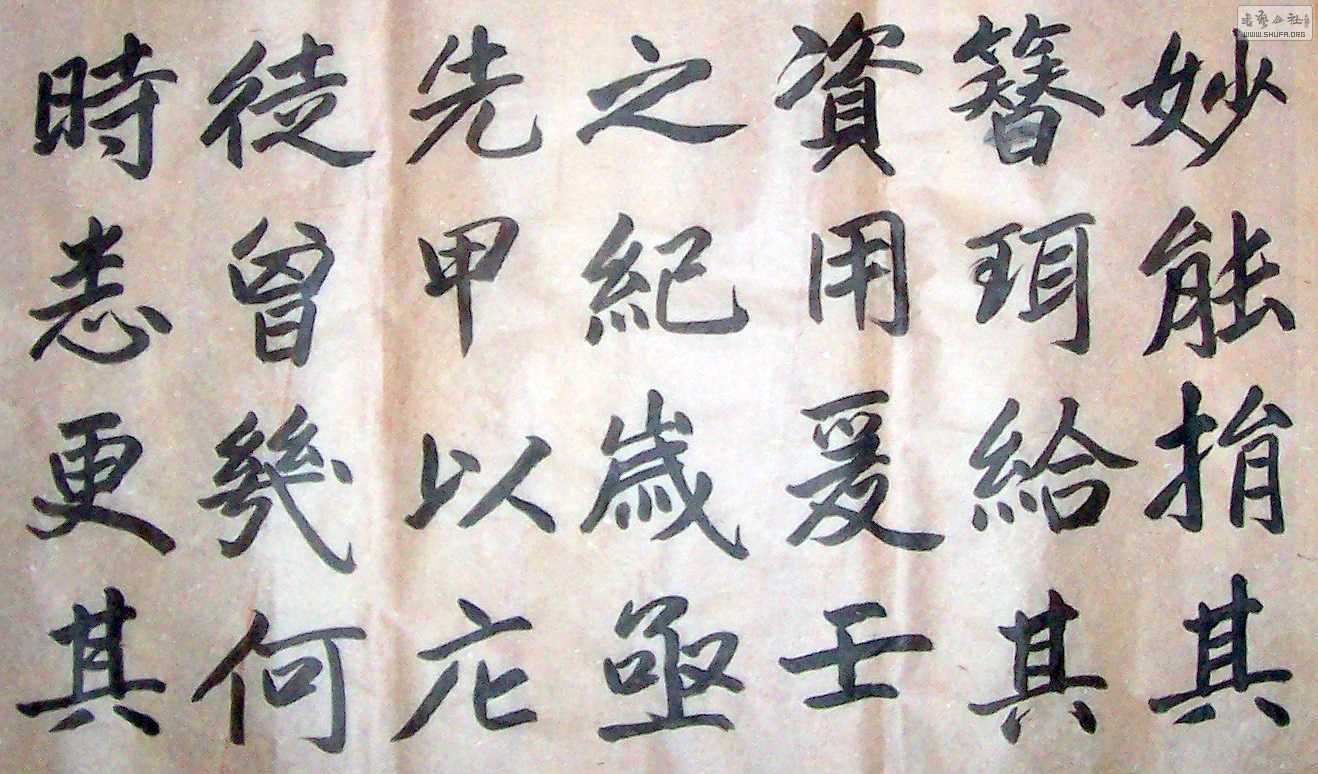 妙能捐其
簪珥給其
資用爰壬
之紀歲亟
先甲以庀
徒曾幾何
時悉更其
書藝公社
WWW.SHUFA.ORG